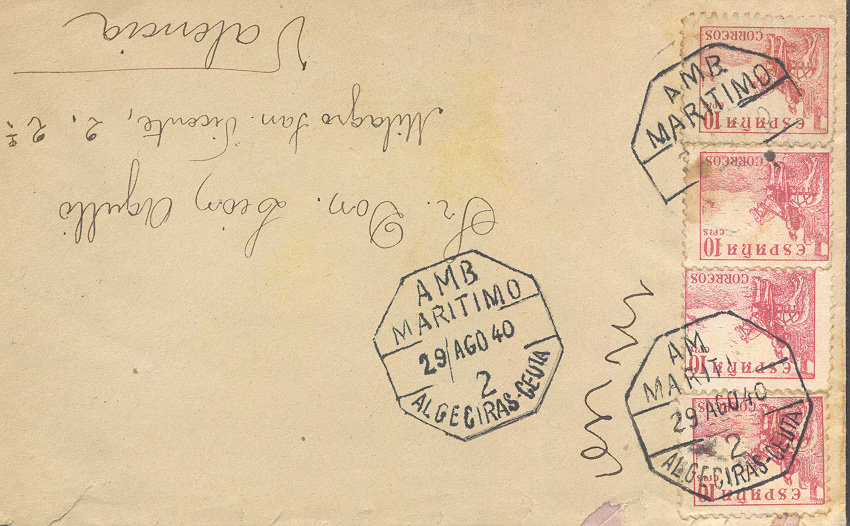 Sr. Don. León Agulló
Milagro San Vicente, 2, 2º
Valencia
AMB.
MARITIMO
AMB
MARITIMO
29 AGO 40
2
ALGECIRAS-CEUTA
AMB
MARITI
29 AGO 40
2
ALGECIRAS-CEUTA
CORREOS
ESPAÑA
10
ESPAÑA
10
CTS
CORREOS
CORREOS
ESPAÑA
10
ESPAÑA
10
CTS